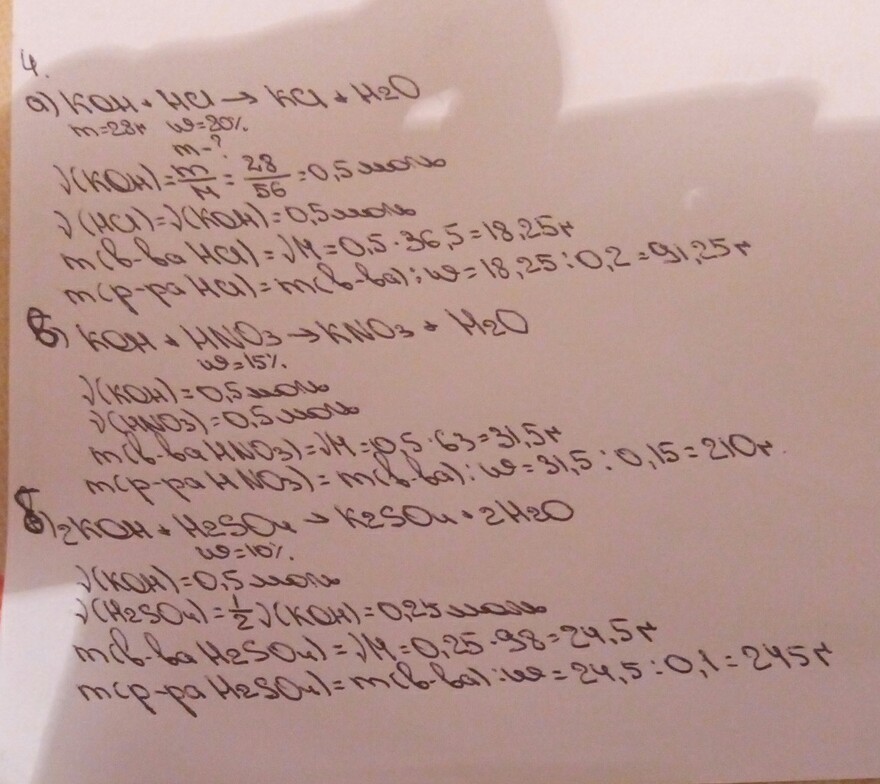 4.
а) KOH + HCl → KCl + H2O
m=28г w=20%
m-?
ν(KOH)=m/M=28/56=0,5моль
ν(HCl)=ν(KOH)=0,5моль
m(в-ва HCl)=νM=0,5·36,5=18,25г
m(р-ра HCl)=m(в-ва):w=18,25:0,2=91,25г
в) KOH + HNO3 → KNO3 + H2O
w=15%
ν(KOH)=0,5моль
ν(HNO3)=0,5моль
m(в-ва HNO3)=νM=0,5·63=31,5г
m(р-ра HNO3)=m(в-ва):w=31,5:0,15=210г
б) 2KOH + H2SO4 → K2SO4 + 2H2O
w=10%
ν(KOH)=0,5моль
ν(H2SO4)=1/2ν(KOH)=0,25моль
m(в-ва H2SO4)=νM=0,25·98=24,5г
m(р-ра H2SO4)=m(в-ва):w=24,5:0,1=245г